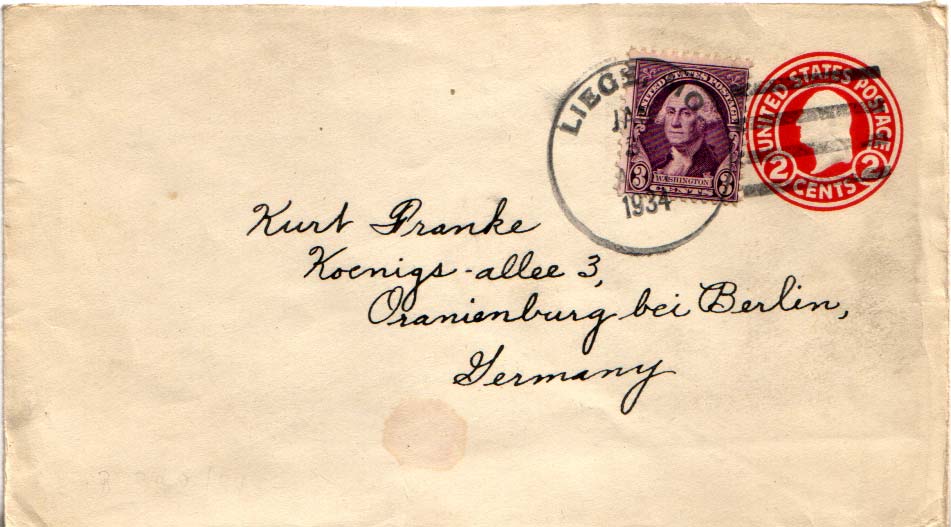 LIEGE, MO.
JA
1934
UNITED STATES POSTAGE
3 WASHINGTON 3
CENTS
UNITED STATES POSTAGE
2 CENTS 2
Kurt Franke
Koenigs-allee 3,
Oranienburg bei Berlin,
Germany